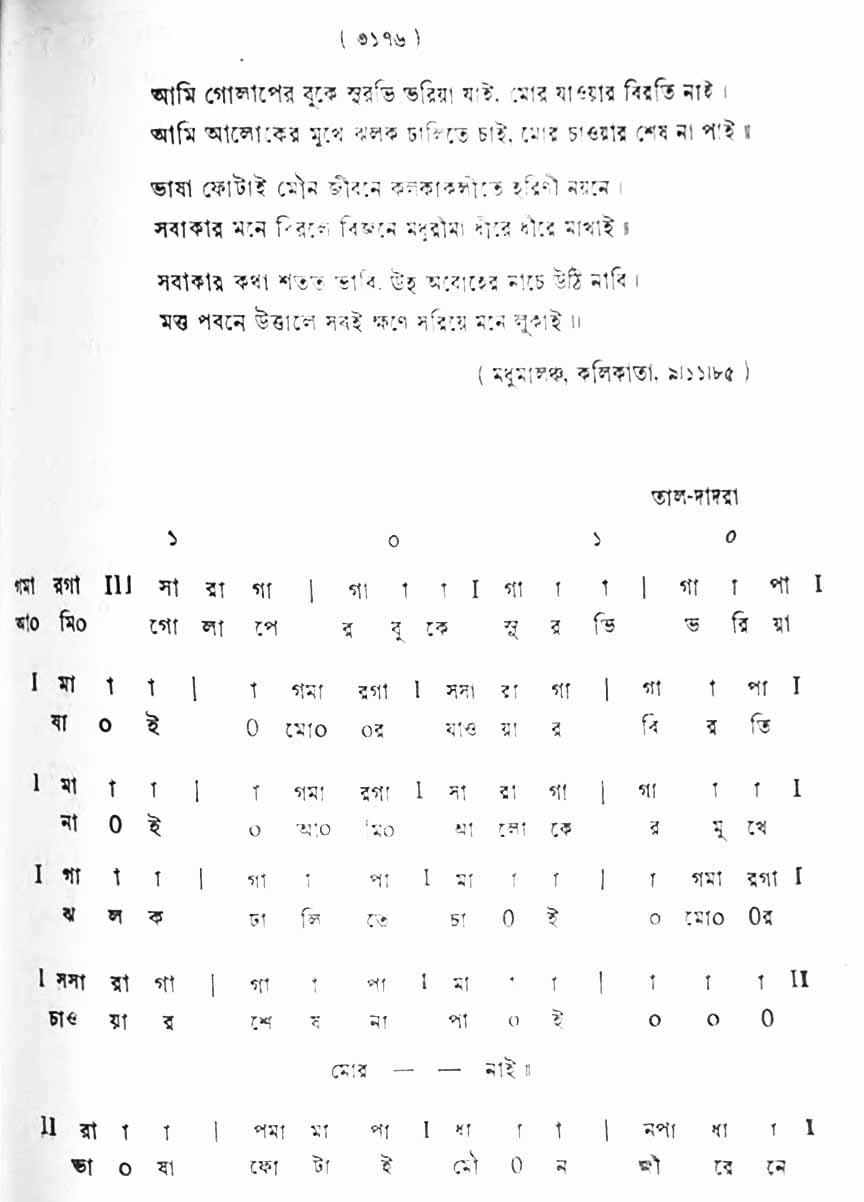 ( ৩১৭৬ )
আমি গোলাপের বুকে সুরভি ভরিয়া যাই, মোর যাওয়ার বিরতি নাই ।
আমি আলোকের মুখে ঝলক ঢালিতে চাই, মোর চাওয়ার শেষ না পাই ॥
ভাষা ফোটাই মৌন জীবনে কলকাকলীতে হরিণী নয়নে ।
সবাকার মনে বিরলে বিজনে মধুরীমা ধীরে ধীরে মাখাই ॥
সবাকার কথা শতত ভাবি, ঊহ অবোহের নাচে উঠি নাবি ।
মত্ত পবনে উত্তালে সবই ক্ষণে সরিয়ে মনে লুকাই ॥
( মধুমালঞ্চ, কলিকাতা, ৯।১১।৮৫ )
তাল-দাদরা
১ ০ ১ ০
গমা রগা III সা রা গা | গা া া I গা া া | গা া পা I
আ০ মি০ গো লা পে র বু কে সু র ভি ভ রি য়া
I মা া া | া গমা রগা I সসা রা গা | গা া পা I
যা ০ ই ০ মো০ ০র যাও য়া র বি র তি
I মা া া | া গমা রগা I সা রা গা | গা া া I
না ০ ই ০ আ০ মি০ আ লো কে র মু খে
I গা া া | গা া পা I মা া া | া গমা রগা I
ঝ ল ক ঢা লি তে চা ০ ই ০ মো০ ০র
I সসা রা গা | গা া পা I মা া া | া া া II
চাও য়া র শে ষ না পা ০ ই ০ ০ ০
মোর — — নাই॥
II রা া া | পমা মা পা I ধা া া | নপা ধা া I
ভা ০ ষা ফো টা ই মৌ ০ ন জী বে নে